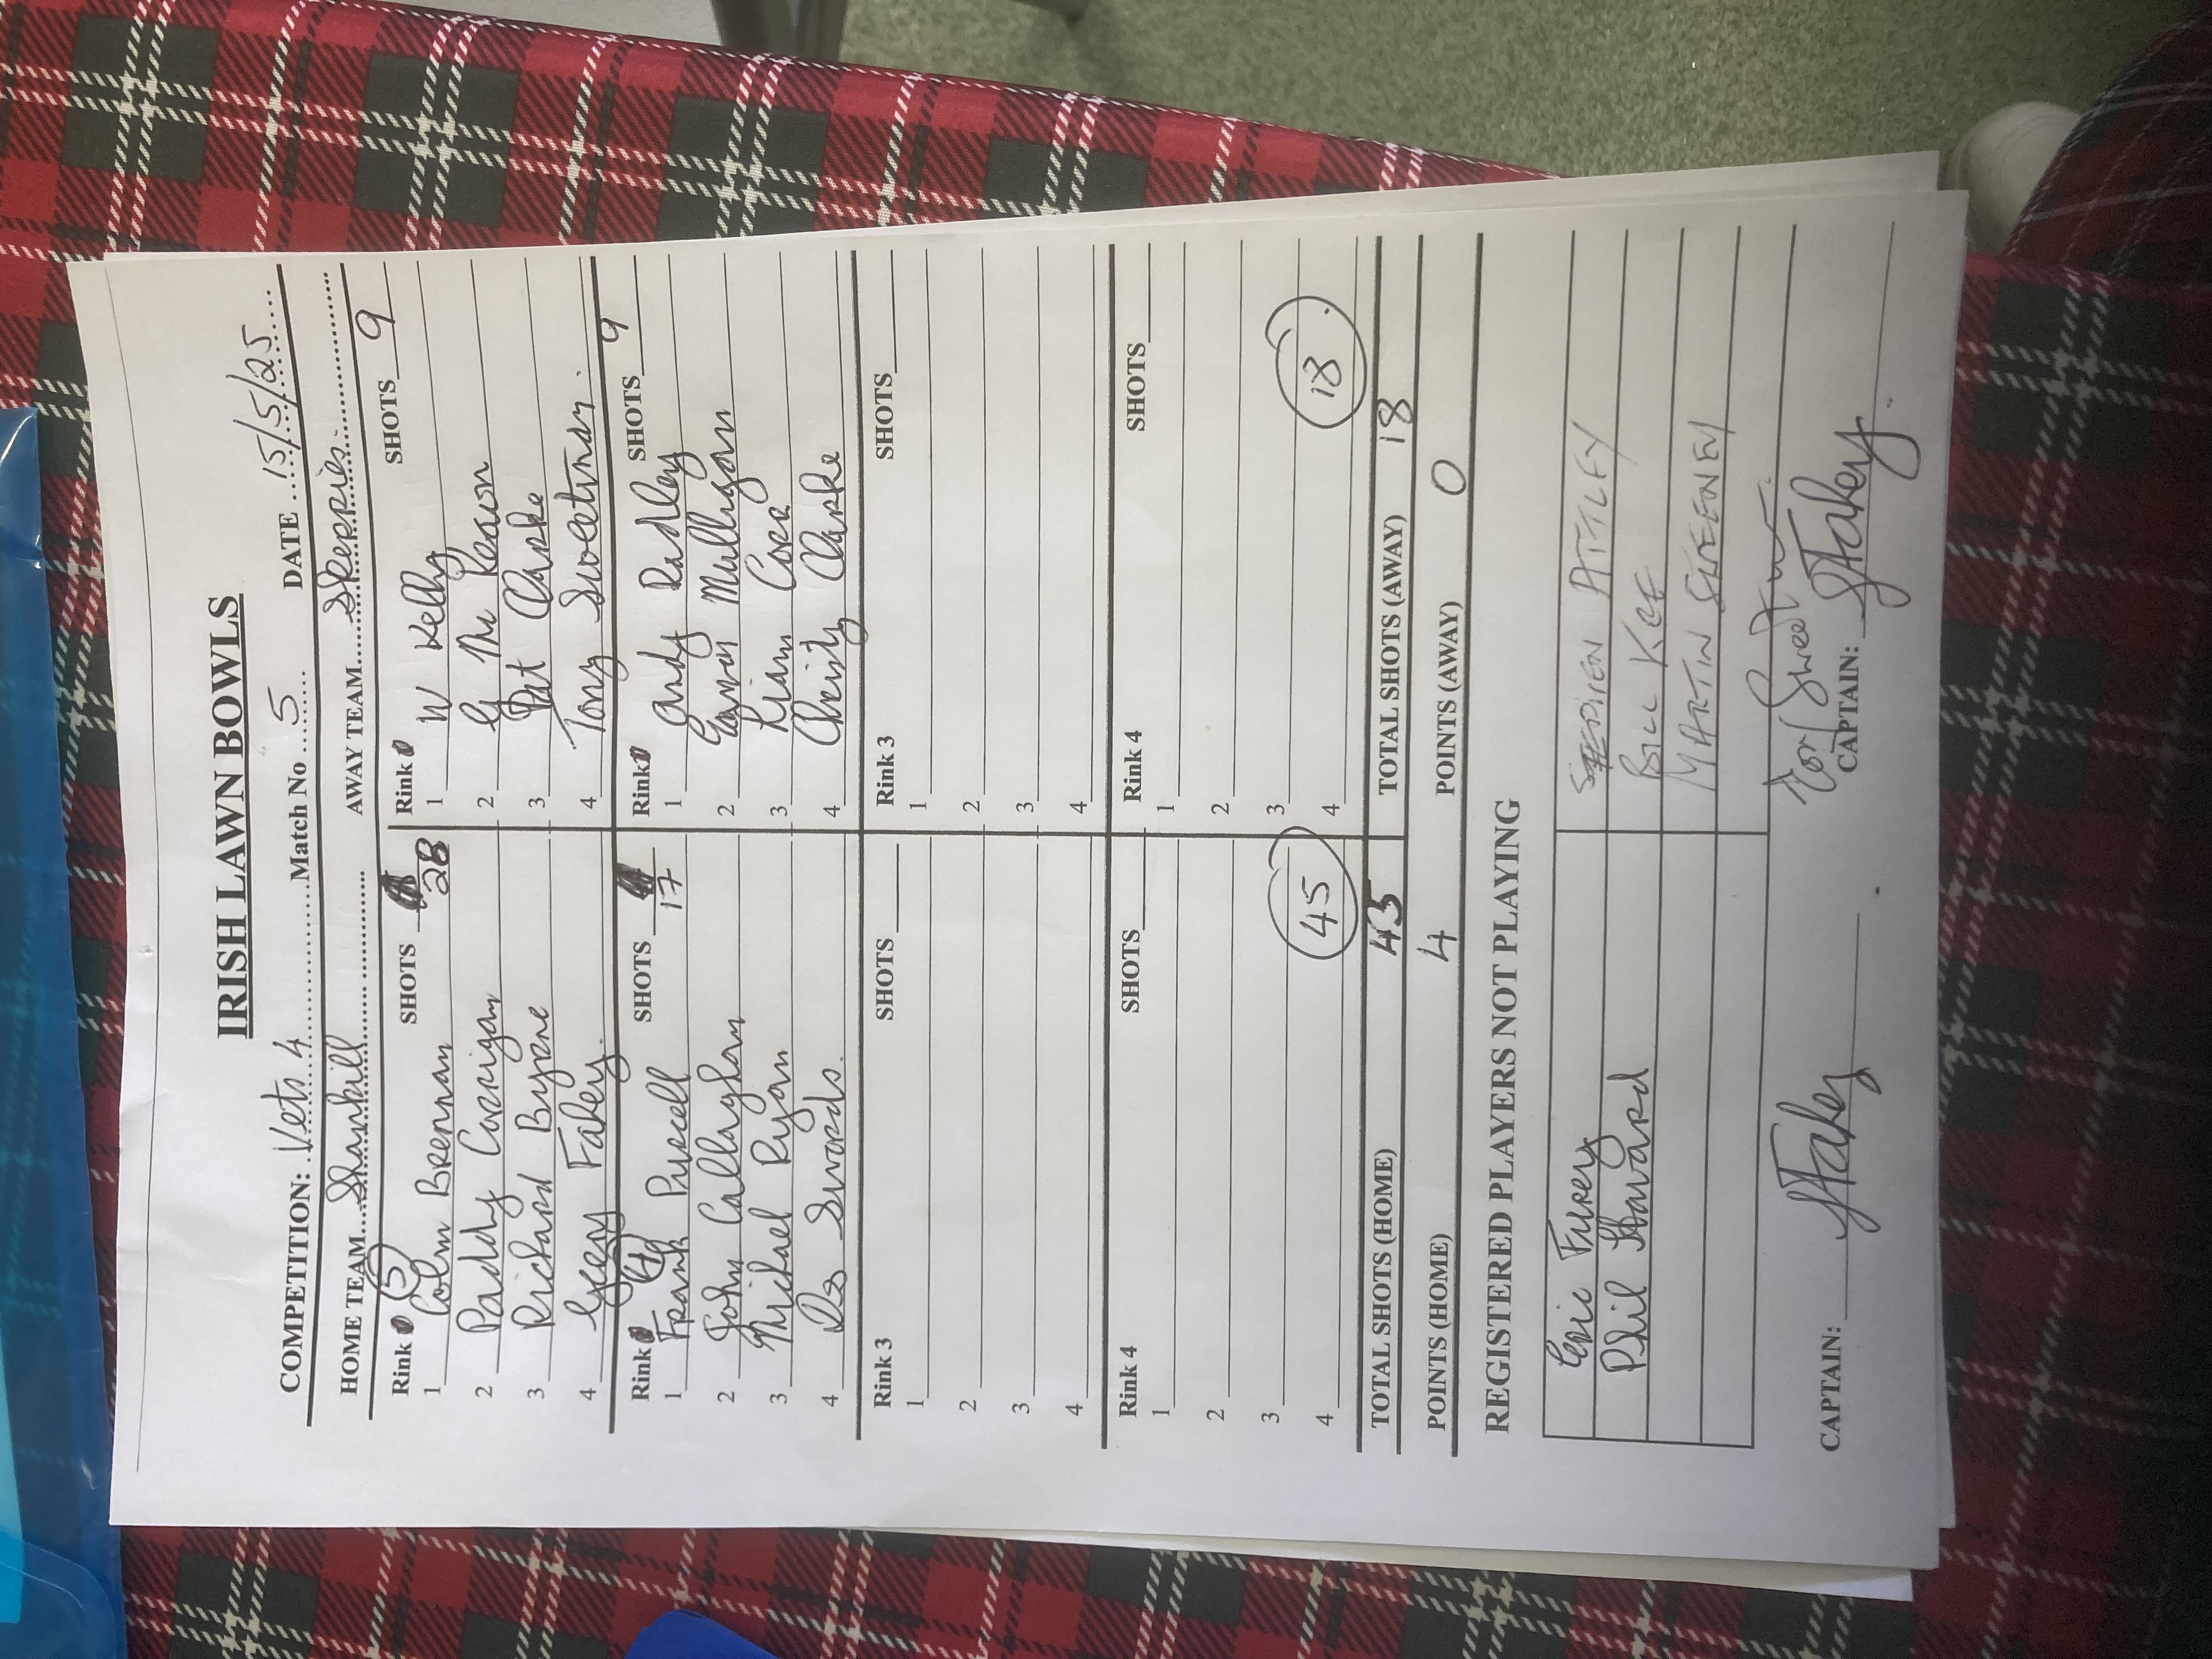 IRISH LAWN BOWLS
COMPETITION: Vets 4 Match No 5 DATE 15/5/25
HOME TEAM Shankill AWAY TEAM Skerries
Rink (5) SHOTS 28 Rink SHOTS 9
1 Colm Brennan 1 W Kelly
2 Paddy Corrigan 2 G Mc Keown
3 Richard Byrne 3 Pat Clarke
4 Gerry Fahey 4 Tony Sweetman
Rink (4) SHOTS 17 Rink SHOTS 9
1 Frank Purcell 1 Andy Radley
2 John Callaghan 2 Gavin Mulligan
3 Michael Ryan 3 Liam Core
4 Des Swords 4 Christy Clarke
Rink 3 SHOTS Rink 3 SHOTS
1 1
2 2
3 3
4 4
Rink 4 SHOTS Rink 4 SHOTS
1 1
2 2
3 3
4 45 4 18
TOTAL SHOTS (HOME) 45 TOTAL SHOTS (AWAY) 18
POINTS (HOME) 4 POINTS (AWAY) 0
REGISTERED PLAYERS NOT PLAYING
Eric Furey ATTLEY
Phil Howard BILL KEE
MARTIN SWEENEY
CAPTAIN: Fahey CAPTAIN: Fahey